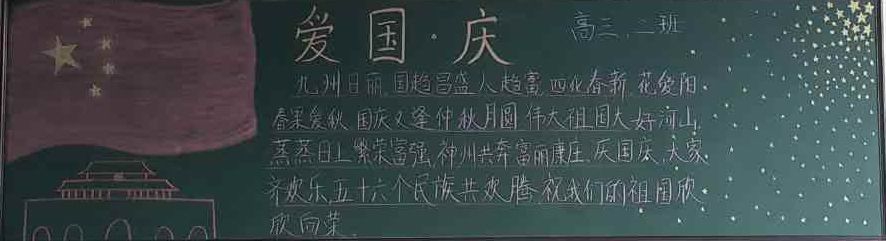 爱国·庆
高三.二班
九州日丽,国趋昌盛人趋富,四化春新,花爱阳
春果爱秋 国庆又逢仲秋月圆 伟大祖国大好河山,
蒸蒸日上繁荣富强,神州共奔富丽康庄、庆国庆、大家
齐欢乐五十六个民族共欢腾,祝我们的祖国欣
欣向荣.